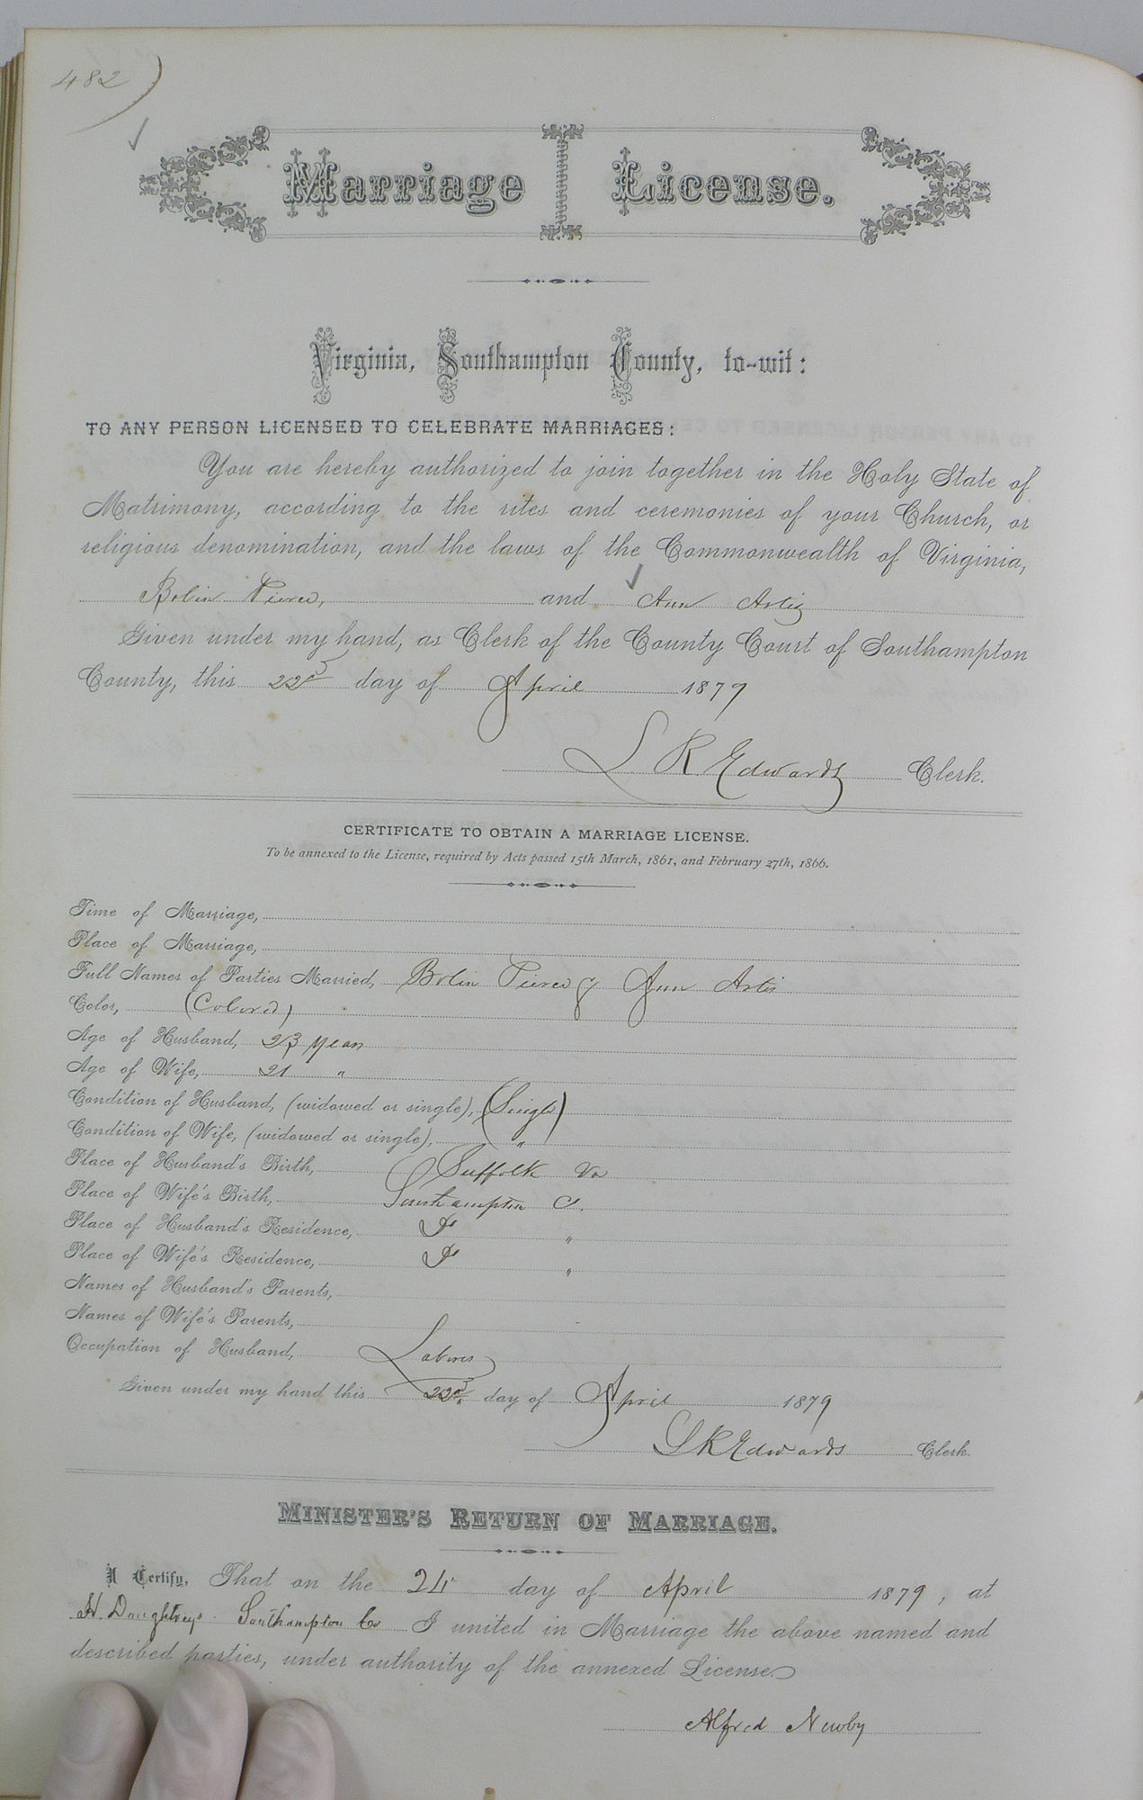 482)
Marriage License.
Virginia, Southampton County, to-wit:
TO ANY PERSON LICENSED TO CELEBRATE MARRIAGES:
You are hereby authorized to join together in the Holy State of
Matrimony, according to the rites and ceremonies of your Church, or
religious denomination, and the laws of the Commonwealth of Virginia,
Bolin Pierce, and Ann Artis
Given under my hand, as Clerk of the County Court of Southampton
County, this 22d day of April 1879
L R Edwards Clerk.
CERTIFICATE TO OBTAIN A MARRIAGE LICENSE.
To be annexed to the License, required by Acts passed 15th March, 1861, and February 27th, 1866.
Time of Marriage,
Place of Marriage,
Full Names of Parties Married, Bolin Pierce & Ann Artis
Color, (Colored)
Age of Husband, 23 years
Age of Wife, 21 "
Condition of Husband, (widowed or single), (Single)
Condition of Wife, (widowed or single), "
Place of Husband's Birth, Suffolk Va
Place of Wife's Birth, Southampton Co.
Place of Husband's Residence, Do "
Place of Wife's Residence, Do "
Names of Husband's Parents,
Names of Wife's Parents,
Occupation of Husband, Laborer
Given under my hand this 22d day of April 1879
L R Edwards Clerk.
MINISTER'S RETURN OF MARRIAGE.
I Certify, That on the 24 day of April 1879, at
H. Daughtreys Southampton Co I united in Marriage the above named and
described parties, under authority of the annexed License.
Alfred Newby